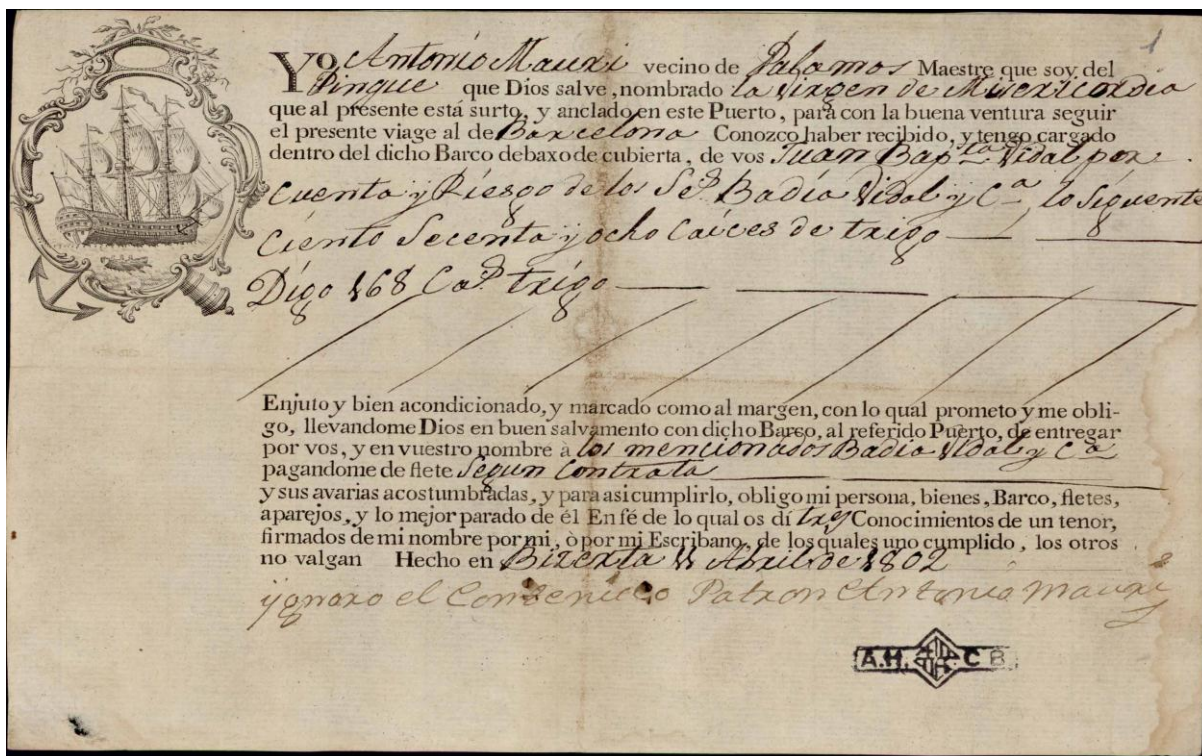 1
Yo Antonio Mauri vecino de Palamos Maestre que soy del
Pinque que Dios salve, nombrado la Virgen de Misericordia
que al presente está surto, y anclado en este Puerto, para con la buena ventura seguir
el presente viage al de Barcelona Conozco haber recibido, y tengo cargado
dentro del dicho Barco debaxo de cubierta, de vos Juan Bapta Vidal por
Cuenta y Riesgo de los Ses Badia Vidal y Ca lo Siguente
Ciento Secenta y ocho Caices de trigo
Digo 168 Cas trigo
Enjuto y bien acondicionado, y marcado como al margen, con lo qual prometo y me obli-
go, llevandome Dios en buen salvamento con dicho Barco, al referido Puerto, de entregar
por vos, y en vuestro nombre à los mencionados Badia Vidal y Ca
pagandome de flete Segun Contrata
y sus avarias acostumbradas, y para asi cumplirlo, obligo mi persona, bienes, Barco, fletes,
aparejos, y lo mejor parado de él En fé de lo qual os dí tres Conocimientos de un tenor,
firmados de mi nombre por mi, ò por mi Escribano, de los quales uno cumplido, los otros
no valgan Hecho en Bizerta 11 Abril de 1802
ygnoro el Contenido Patron Antonio Mauri
A.H. C B.